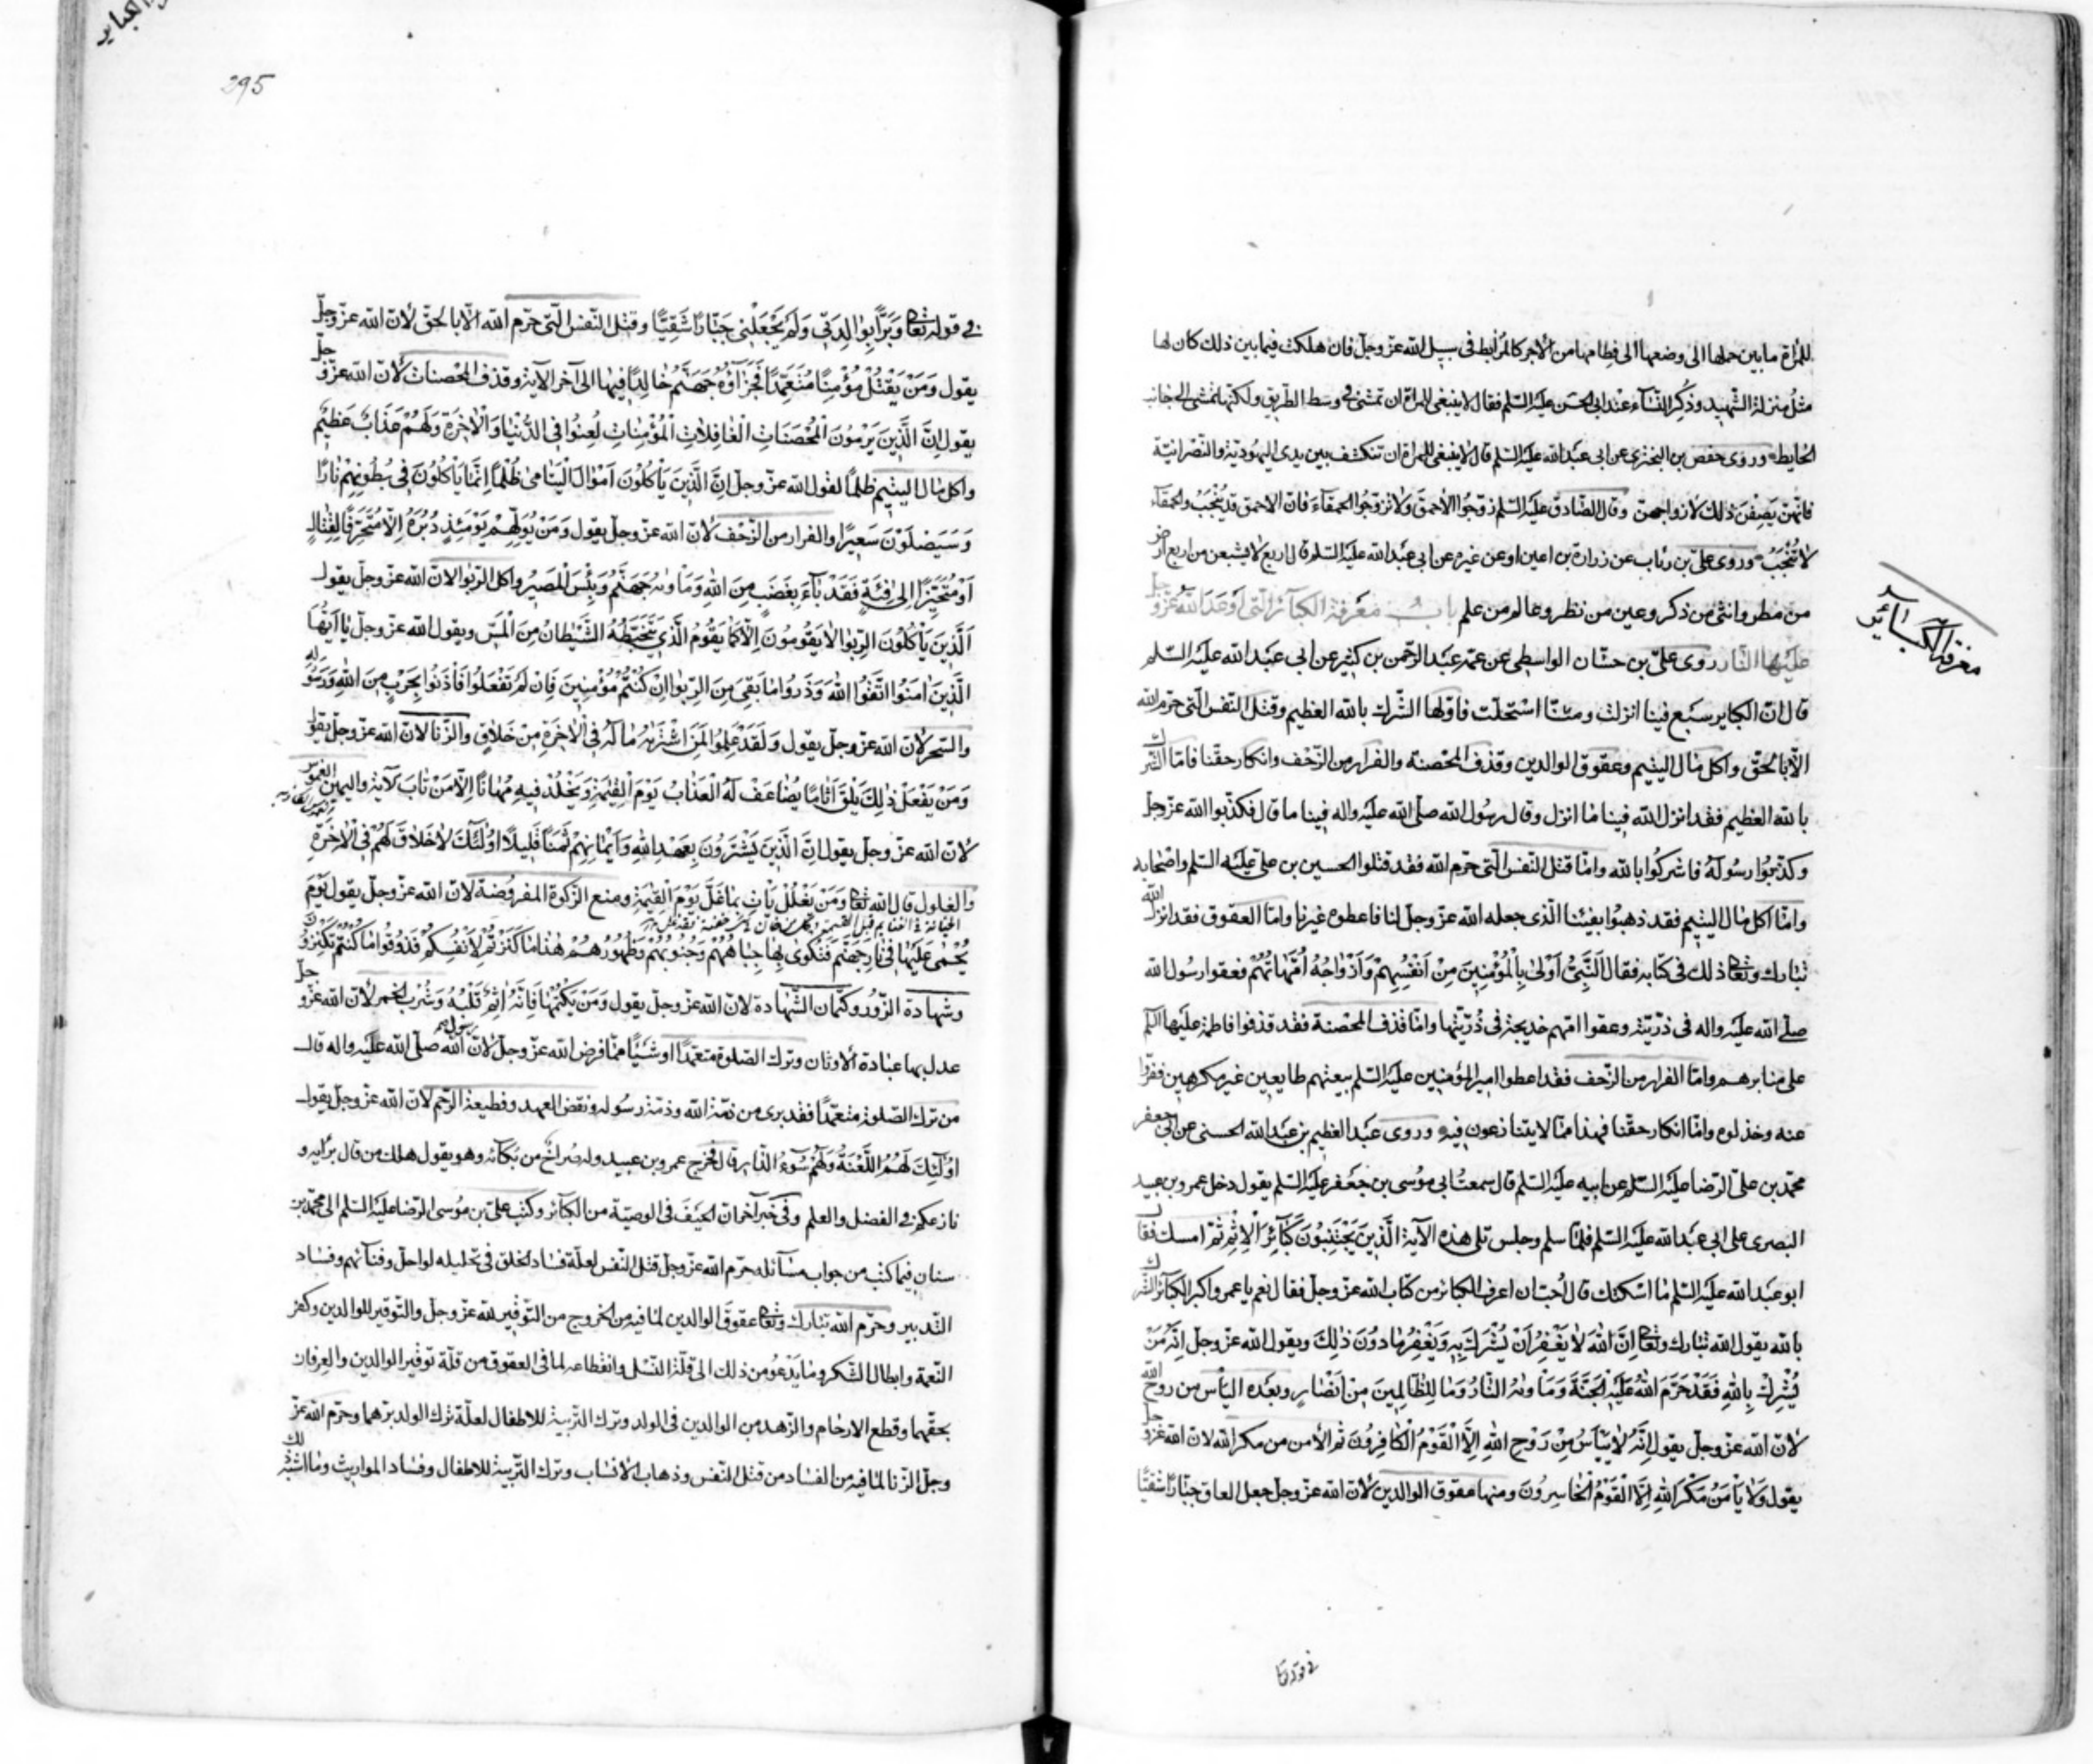 للمرأة ما بين حملها الى وضعها الى فطامها من الأجر كالمرابط فى سبيل الله عزّ وجلّ فان هلكت فيما بين ذلك كان لها
مثلُ منزلة الشّهيد وذُكِر النّسآء عند ابى الحسن عليه السّلم فقال لا ينبغى للمرأة ان تمشى فى وسط الطّريق ولكنّها تمشى الى جانب
الحايط وروى حفص بن البخترى عن ابى عبد الله عليه السّلم قال لا ينبغى للمرأة ان تنكشف بين يدى اليهُوديّة والنّصرانيّة
فانّهنّ يَصِفْنَ ذلك لأزواجهنّ وقال الصّادق عليه السّلم زوّجوا الأحمقَ ولا تزوّجُوا الحمقآءَ فانّ الاحمق قد يُنْجَبُ والحمقآء
لا تُنْجَبُ وروى علىّ بن رئاب عن زرارة بن اعين او عن غيره عن ابى عبد الله عليه السّلم قال اربع لا يشبعن من اربع ارض
من مطر وانثى من ذكر وعين من نظر وعالم من علم باب معرفة الكبآئر الّتى اوعد الله عزّ وجلّ
عليها النّار روى علىّ بن حسّان الواسطى عن عمّه عبد الرّحمن بن كثير عن ابى عبد الله عليه السّلم
قال انّ الكباير سبع فينا انزلت ومنّا استحلّت فاوّلها الشّرك بالله العظيم وقتل النّفس الّتى حرّم الله
الّا بالحقّ واكل مال اليتيم وعقوق الوالدين وقذف المحصنة والفرار من الزّحف وانكار حقّنا فامّا الشّرك
بالله العظيم فقد انزل الله فينا ما انزل وقال رسُول الله صلّى الله عليه واله فينا ما قال فكذّبوا الله عزّ وجلّ
وكذّبوُا رسُولَهُ فاشركُوا بالله وامّا قتل النّفس الّتى حرّم الله فقد قتلوا الحسين بن علىّ عليه السّلم واصحابه
وامّا اكل مال اليتيم فقد ذهبوُا بفيئنا الّذى جعله الله عزّ وجلّ لنا فاعطوه غيرنا وامّا العقوق فقد انزل الله
تبارك وتعالى ذلك فى كتابه فقال اَلنَّبِىُّ اَوْلىٰ بِالْمُؤْمِنِينَ مِنْ اَنْفُسِهِمْ وَاَزْوَاجُهُ اُمَّهَاتُهُمْ فعقوا رسُول الله
صلّى الله عليه واله فى ذرّيّته وعقوا امّهم خديجة فى ذُرّيّتها وامّا قذف المحصنة فقد قذفوا فاطمة عليها السّلم
على منابرهم وامّا الفرار من الزّحف فقد اعطوا امير المؤمنين عليه السّلم بيعتهم طايعين غير مكرهين ففرّوا
عنه وخذلوه وامّا انكار حقّنا فهذا ممّا لا يتنازعون فيه وروى عبد العظيم بن عبد الله الحسنى عن ابى جعفر
محمّد بن علىّ الرّضا عليه السّلم عن ابيه عليه السّلم قال سمعتُ ابى مُوسى بن جعفر عليه السّلم يقول دخل عمرو بن عبيد
البصرى على ابى عبد الله عليه السّلم فلمّا سلم وجلس تلى هذه الآية اَلَّذِينَ يَجْتَنِبُونَ كَبَآئِرَ الْاِثْمِ ثمّ امسك فقال
ابو عبد الله عليه السّلم ما اسكتك قال اُحبّ ان اعرف الكبائر من كتاب الله عزّ وجلّ فقال نعم يا عمرو اكبر الكبآئر الشّرك
بالله يقول الله تبارك وتعالى اِنَّ اللهَ لا يَغْفِرُ اَنْ يُشْرَكَ بِهِ وَيَغْفِرُ مَا دُونَ ذٰلِكَ ويقول الله عزّ وجلّ اِنَّهُ مَنْ
يُشْرِكْ بِاللهِ فَقَدْ حَرَّمَ اللهُ عَلَيْهِ الْجَنَّةَ وَمَاْوٰيهُ النَّارُ وَمَا لِلظَّالِمِينَ مِنْ اَنْصَارٍ وبعده اليأس من روح الله
لانّ الله عزّ وجلّ يقول اِنَّهُ لا يَيْأَسُ مِنْ رَوْحِ اللهِ اِلَّا الْقَوْمُ الْكَافِرُونَ ثمّ الأمن من مكر الله لانّ الله عزّ وجلّ
يقول وَلا يَأْمَنُ مَكْرَ اللهِ اِلَّا الْقَوْمُ الْخَاسِرُونَ ومنها عقوق الوالدين لأنّ الله عزّ وجلّ جعل العاق جبّارًا شقيًّا
معرفة الكبائر
فى قوله تعا
295
فى قوله تعالى وَبَرًّا بِوَالِدَتِى وَلَمْ يَجْعَلْنِى جَبَّارًا شَقِيًّا وقتل النّفس الّتى حرّم الله الّا بالحقّ لأنّ الله عزّ وجلّ
يقول وَمَنْ يَقْتُلْ مُؤْمِنًا مُتَعَمِّدًا فَجَزَآؤُهُ جَهَنَّمُ خَالِدًا فِيهَا الى آخر الآية وقذف المحصنات لأنّ الله عزّ وجلّ
يقول اِنَّ الَّذِينَ يَرْمُونَ الْمُحْصَنَاتِ الْغَافِلَاتِ الْمُؤْمِنَاتِ لُعِنُوا فِى الدُّنْيَا وَالْاٰخِرَةِ وَلَهُمْ عَذَابٌ عَظِيمٌ
واكل مال اليتيم ظلمًا لقول الله عزّ وجلّ اِنَّ الَّذِينَ يَأْكُلُونَ اَمْوَالَ الْيَتَامىٰ ظُلْمًا اِنَّمَا يَأْكُلُونَ فِى بُطُونِهِمْ نَارًا
وَسَيَصْلَوْنَ سَعِيرًا والفرار من الزّحف لأنّ الله عزّ وجلّ يقول وَمَنْ يُوَلِّهِمْ يَوْمَئِذٍ دُبُرَهُ اِلَّا مُتَحَرِّفًا لِقِتَالٍ
اَوْ مُتَحَيِّزًا اِلىٰ فِئَةٍ فَقَدْ بَآءَ بِغَضَبٍ مِنَ اللهِ وَمَاْوٰيهُ جَهَنَّمُ وَبِئْسَ الْمَصِيرُ واكل الرّبوا لانّ الله عزّ وجلّ يقول
اَلَّذِينَ يَأْكُلُونَ الرِّبوا لا يَقُومُونَ اِلَّا كَمَا يَقُومُ الَّذِى يَتَخَبَّطُهُ الشَّيْطَانُ مِنَ الْمَسِّ ويقول الله عزّ وجلّ يَا اَيُّهَا
الَّذِينَ اٰمَنُوا اتَّقُوا اللهَ وَذَرُوا مَا بَقِىَ مِنَ الرِّبوا اِنْ كُنْتُمْ مُؤْمِنِينَ فَاِنْ لَمْ تَفْعَلُوا فَأْذَنُوا بِحَرْبٍ مِنَ اللهِ وَرَسُولِهِ
والسّحر لأنّ الله عزّ وجلّ يقول وَلَقَدْ عَلِمُوا لَمَنِ اشْتَرٰيهُ مَا لَهُ فِى الْاٰخِرَةِ مِنْ خَلَاقٍ والزّنا لانّ الله عزّ وجلّ يقول
وَمَنْ يَفْعَلْ ذٰلِكَ يَلْقَ اَثَامًا يُضَاعَفْ لَهُ الْعَذَابُ يَوْمَ الْقِيٰمَةِ وَيَخْلُدْ فِيهِ مُهَانًا اِلَّا مَنْ تَابَ الآية واليمين الغموس
لأنّ الله عزّ وجلّ يقول اِنَّ الَّذِينَ يَشْتَرُونَ بِعَهْدِ اللهِ وَاَيْمَانِهِمْ ثَمَنًا قَلِيلًا اُولٰئِكَ لا خَلَاقَ لَهُمْ فِى الْاٰخِرَةِ
والغلول قال الله تعالى وَمَنْ يَغْلُلْ يَأْتِ بِمَا غَلَّ يَوْمَ الْقِيٰمَةِ ومنع الزّكوة المفروضة لانّ الله عزّ وجلّ يقول يَوْمَ
يُحْمىٰ عَلَيْهَا فِى نَارِ جَهَنَّمَ فَتُكْوىٰ بِهَا جِبَاهُهُمْ وَجُنُوبُهُمْ وَظُهُورُهُمْ هٰذَا مَا كَنَزْتُمْ لِاَنْفُسِكُمْ فَذُوقُوا مَا كُنْتُمْ تَكْنِزُونَ
وشهادة الزّور وكتمان الشّهادة لانّ الله عزّ وجلّ يقول وَمَنْ يَكْتُمْهَا فَاِنَّهُ اٰثِمٌ قَلْبُهُ وَشُرْب الخمر لأنّ الله عزّ وجلّ
عدل بها عبادة الأوثان وترك الصّلوة متعمّدًا او شيئًا ممّا فرض الله عزّ وجلّ لأنّ رسول الله صلّى الله عليه واله قال
من ترك الصّلوة متعمّدًا فقد برى من ذمّة الله وذمّة رسُوله ونقض العهد وقطيعة الرّحم لانّ الله عزّ وجلّ يقول
اُولٰئِكَ لَهُمُ اللَّعْنَةُ وَلَهُمْ سُوٓءُ الدَّارِ قال فخرج عمرو بن عبيد وله صُراخ من بكآئه وهو يقول هلك من قال برأيه و
نازعكم فى الفضل والعلم وفى خبر آخر انّ الحيف فى الوصيّة من الكبآئر وكتب علىّ بن مُوسى الرّضا عليه السّلم الى محمّد بن
سنان فيما كتب من جواب مسآئله حرّم الله عزّ وجلّ قتل النّفس لعلّة فساد الخلق فى تحليله لو احلّ وفنآئهم وفساد
التّدبير وحرّم الله تبارك وتعالى عقوق الوالدين لما فيه من الخروج من التّوقير لله عزّ وجلّ والتّوقير للوالدين وكفر
النّعمة وابطال الشّكر وما يَدْعُو من ذلك الى قلّة النّسل وانقطاعه لما فى العقوق من قلّة توقير الوالدين والعِرفان
بحقّهما وقطع الارحام والزّهد من الوالدين فى الولد وترك التّربية للاطفال لعلّة ترك الولد برّهما وحرّم الله عزّ
وجلّ الزّنا لما فيه من الفساد من قتل النّفس وذهاب الأنساب وترك التّربية للاطفال وفساد المواريث وما اشبه ذلك